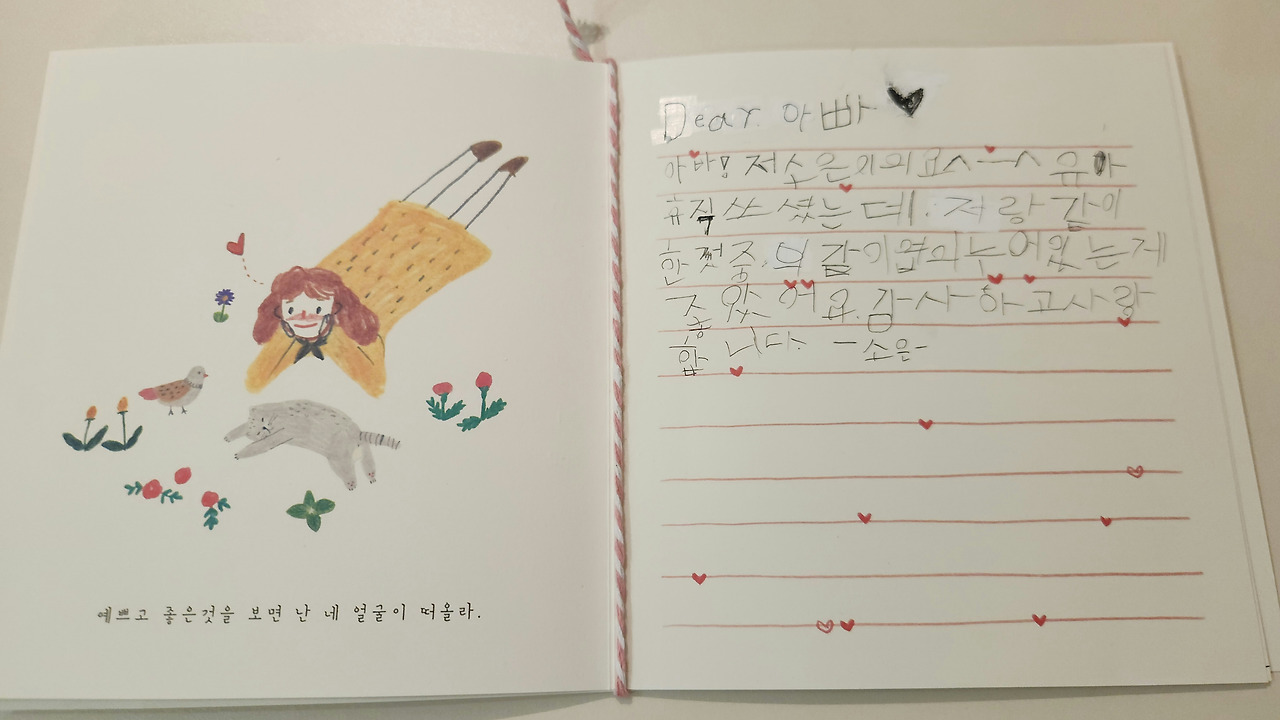 예쁘고 좋은것을 보면 난 네 얼굴이 떠올라.
Dear. 아빠
아바밍 저소은이의요^一^ 유아
휴직 쓰셨는데. 저랑 같이
한것중. 의 같이엽의누어있는게
좋았어요. 감사하고사랑
합니다. -소은-